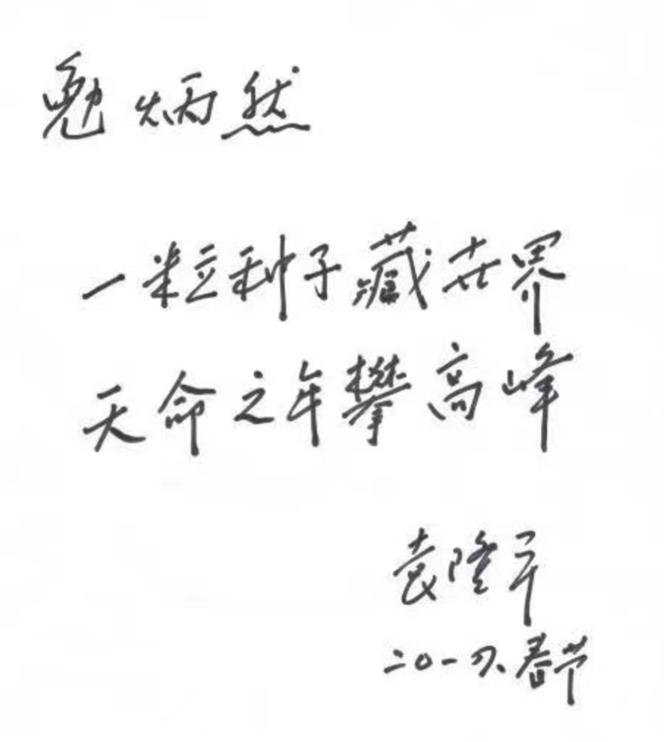 勉炳然
一粒种子藏世界
天命之年攀高峰
袁隆平
二〇一九.春节